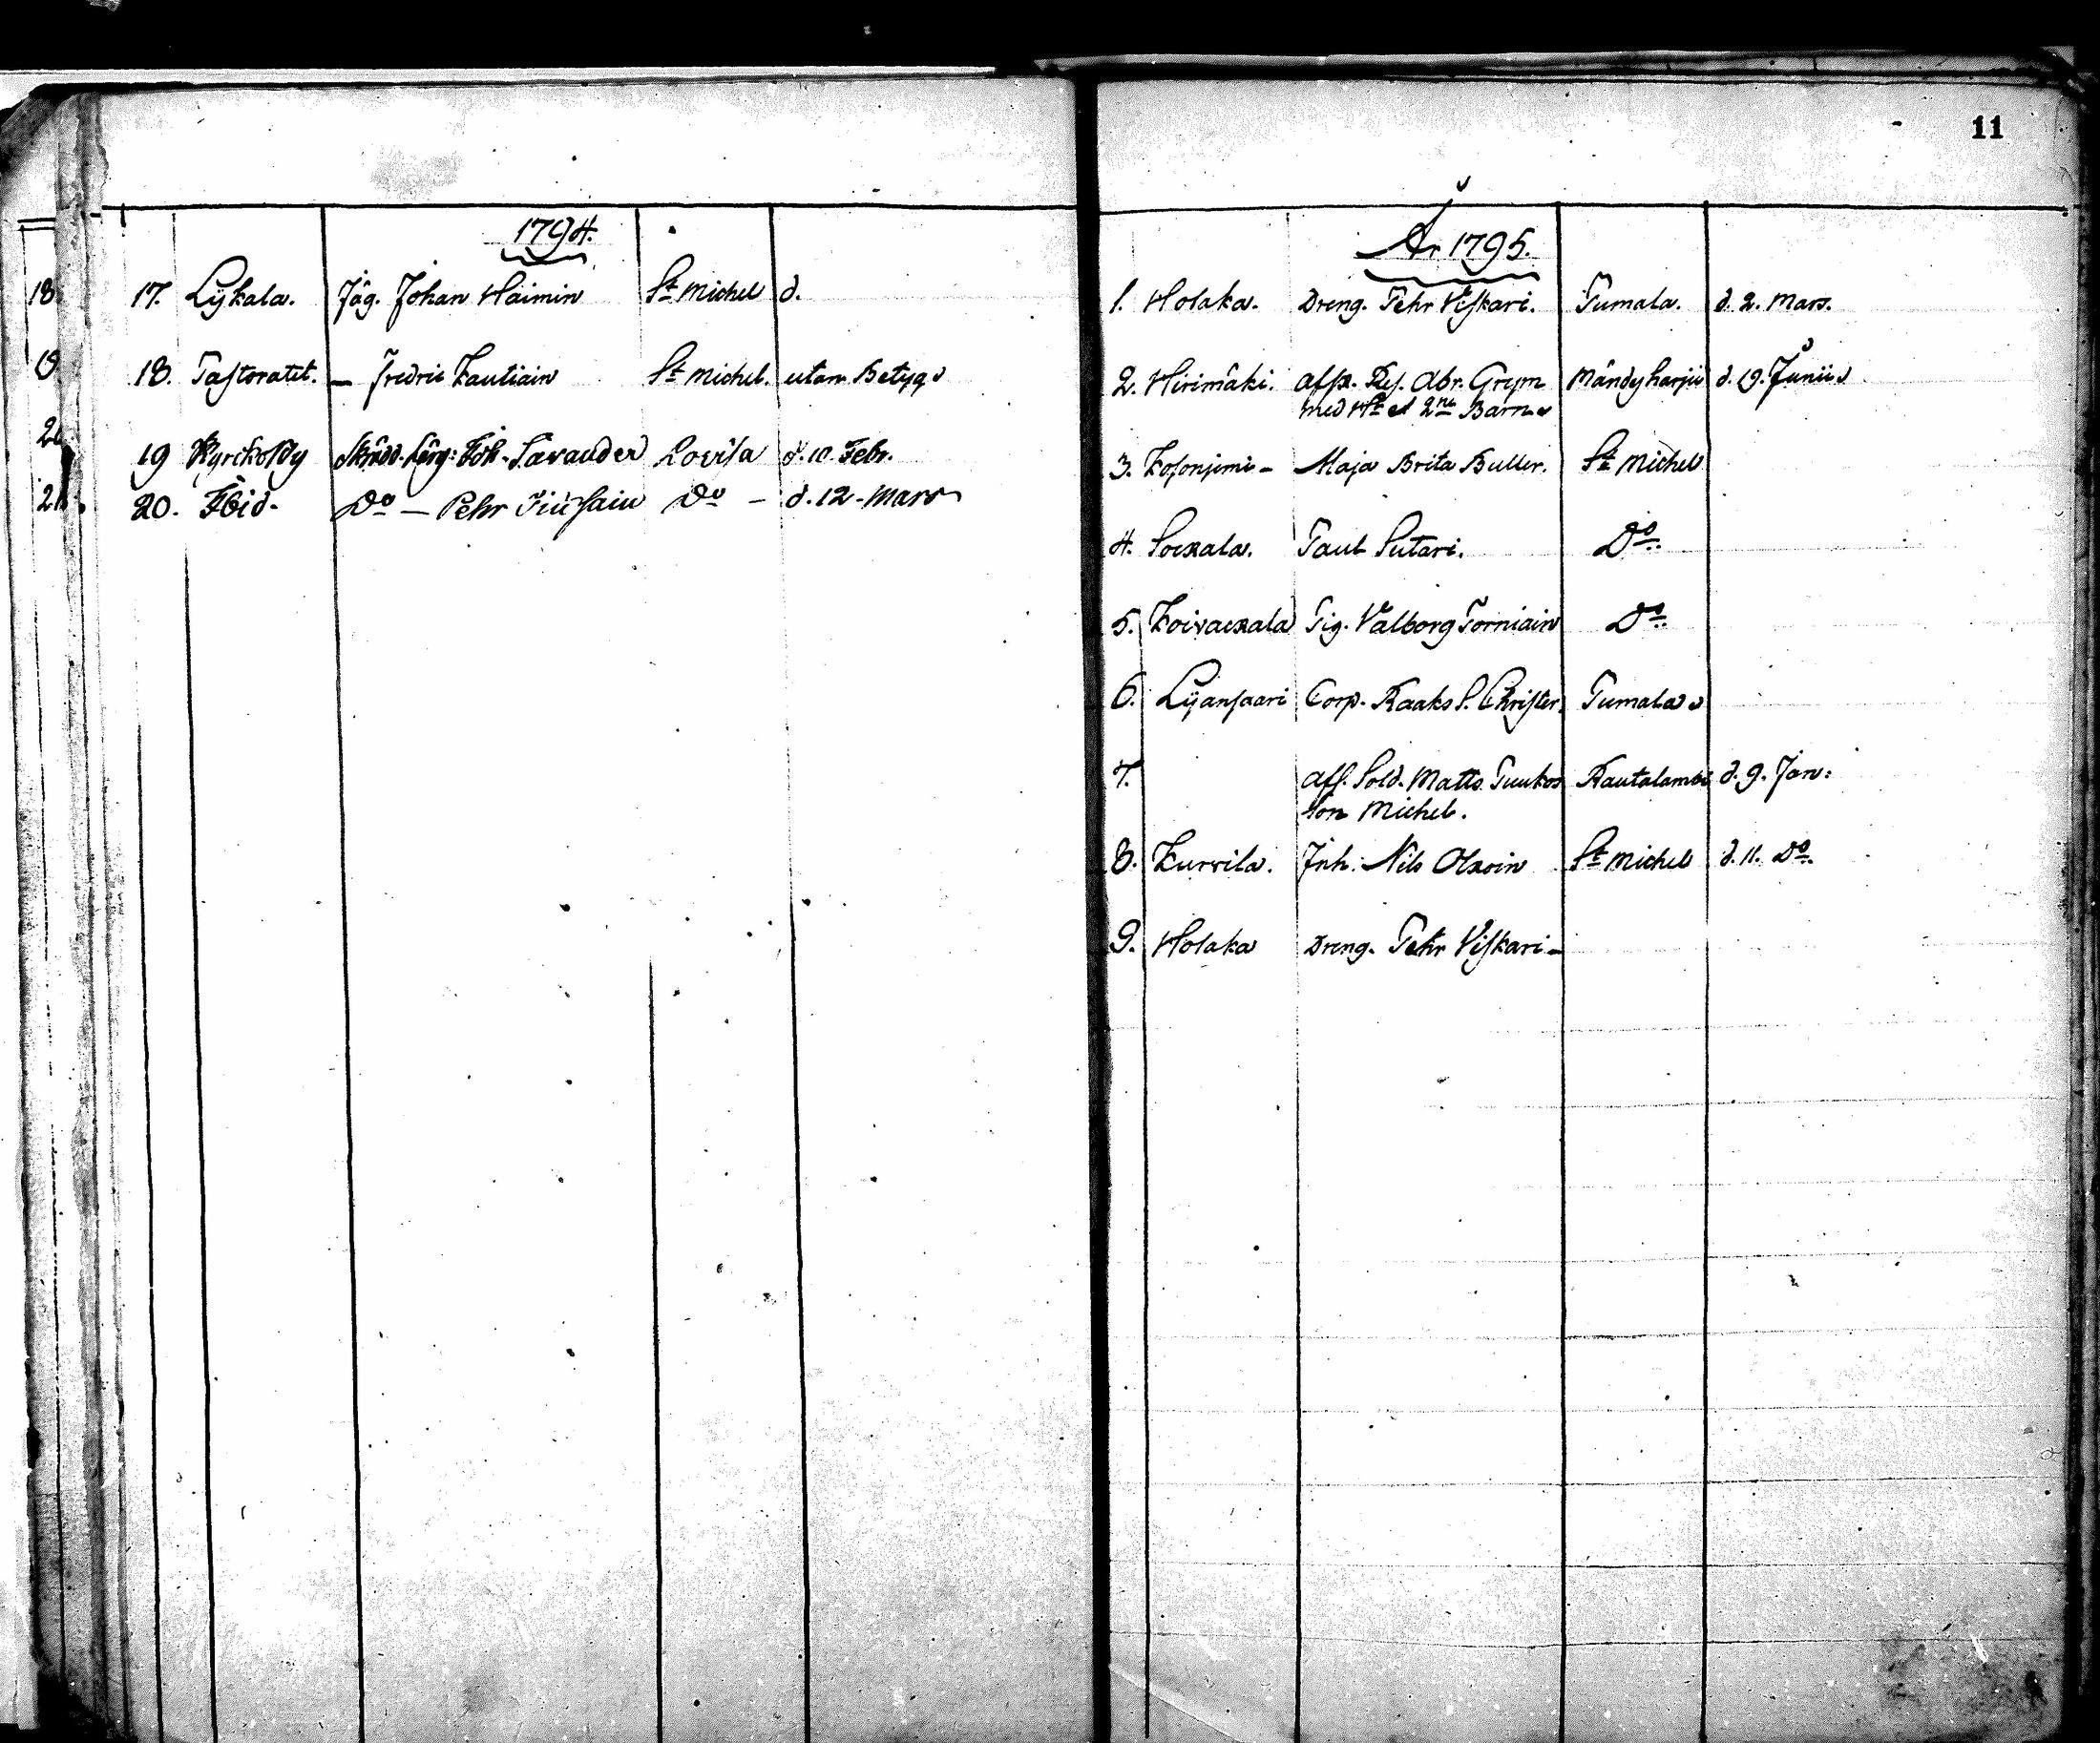 11
1794.
18. 17. Lÿkala. Jäg. Johan Häimin St Michel d.
19. 18. Pastoratet. — Fredric Kautiain St Michel. utan Betyg
20. 19 Kyrckoby Skrädd. Lärg: Joh. Savander Lovisa d. 10. Febr.
21. 20. Ibid. Do — Pehr Do — d. 12 - Mars
År 1795.
1. Holaka. Dreng. Pehr Viskari. Pumala. d. 2. Mars.
2. Hirimäki. Afsk. Ry. Abr. Grym Mändyharju d. 19. Junii
med Hu et 2ne Barn
3. Kosonjemi - Maja Brita Buller. St Michel
4. Soexala. Paul Sutari. Do.
5. Koivaexala Pig. Valborg Torniain Do.
6. Lÿansaari Corp. Raaks S. Christer. Pumala
7. Afs. Sold. Matts. Puukos Rautalambi d. 9. Jan:
son Michel.
8. Kurvila. Inh. Nils Olxoin St Michel d. 11. Do.
9. Holaka Dreng. Pehr Viskari -